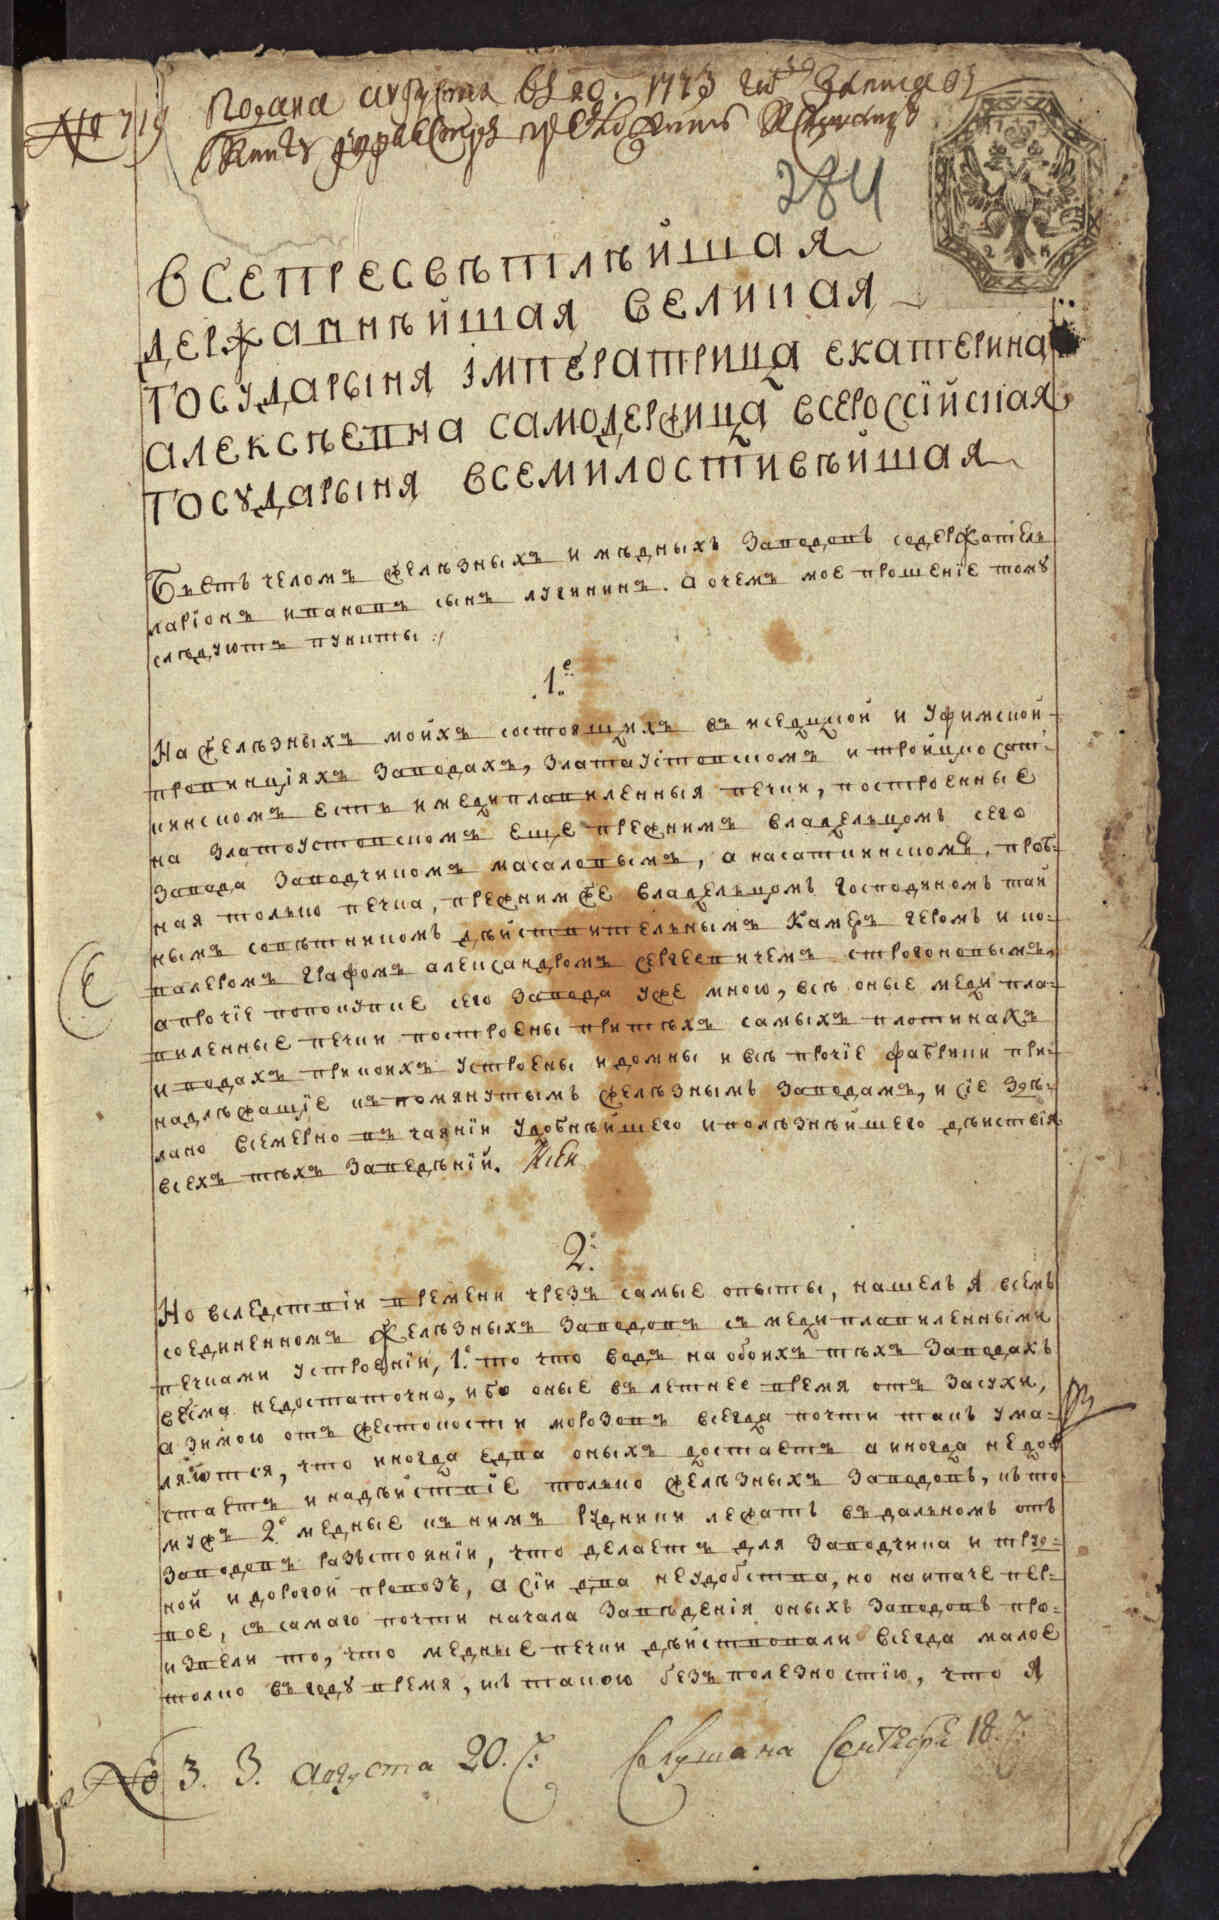 № 719
Подана августа въ 20. 1773 году Записавъ
въ книгу
284
ВСЕПРЕСВѢТЛѢЙШАЯ
ДЕРЖАВНѢЙШАЯ ВЕЛИКАЯ
ГОСУДАРЫНЯ ІМПЕРАТРИЦА ЕКАТЕРИНА
АЛЕКСѢЕВНА САМОДЕРЖИЦА ВСЕРОССІЙСКАЯ
ГОСУДАРЫНЯ ВСЕМИЛОСТИВѢЙШАЯ
Бьетъ челомъ желѣзныхъ и мѣдныхъ Заводовъ содержатель
ларіонъ ивановъ сынъ лугининъ. а о чемъ мое прошеніе тому
слѣдуютъ пункты :/
1.е
На желѣзныхъ мойхъ состоящихъ въ исецкой и Уфимской
провинціяхъ Заводахъ, Златаустовскомъ и тройцко сат:
кинскомъ есть и медиплавиленныя печки, построенные
на Златоустовскомъ еще прежнимъ владельцомъ сего
Завода Заводчикомъ масаловымъ, а на саткинскомъ, проб-
ная только печка, прежним же владельцомъ господиномъ тай
нымъ советникомъ действительнымъ Камеръ геромъ и ко-
валеромъ графомъ александромъ сергеевичемъ строгоновымъ,
а прочіе попокупке сего Завода уже мною, всѣ оные меди пла-
виленные печки построены притѣхъ самыхъ плотинахъ
и водахъ прикоихъ устроены и домны и всѣ прочіе фабрики при-
надлѣжащіе къ помянутымъ желѣзнымъ Заводамъ, и сіе Здѣ-
лано всемерно въ чаяніи удобнѣйшего и полѣзнѣйшего дѣиствія
всехъ тѣхъ Заведѣній.
2.
Но вследствіи времени чрезъ самые опыты, нашелъ я всемъ
соединенномъ желѣзныхъ Заводовъ съ медиплавиленными
печками устроеніи, 1е то что водъ на обоихъ тѣхъ Заводахъ
весма недостаточно, ибо оные въ летнее время отъ Засухи,
а зимою отъ жестокости морозовъ всегда почти такъ ума-
ляются, что иногда едва оныхъ достаетъ а иногда недо
стаетъ и надѣйствіе только желѣзныхъ Заводовъ, къ то-
мужъ 2е медные къ нимъ Рудники лежатъ въ дальномъ отъ
Заводовъ разъстояніи, что делаетъ для Заводчика и труд-
ной и дорогой провозъ, а сіи два неудобства, но наипаче пер-
вое, съ самаго почти начала Заведенія оныхъ Заводовъ про-
извели то, что медные печки дѣйствовали всегда малое
толко въ году время, и съ такою безъ полезностію, что я
№ 3. З. августа 20. Слушана Сентебря 18.